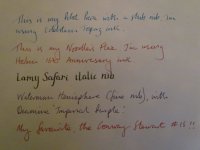 This is my Pilot Pera with a stub nib, I'm
using
This is my Noodlers Flex. I'm using
Helix 150th Anniversary ink
Lamy Safari italic nib
Waterman Hemisphere (fine nib), with
Diamine 'Imperial Purple'.
My favourite the Conway Stewart #16!!